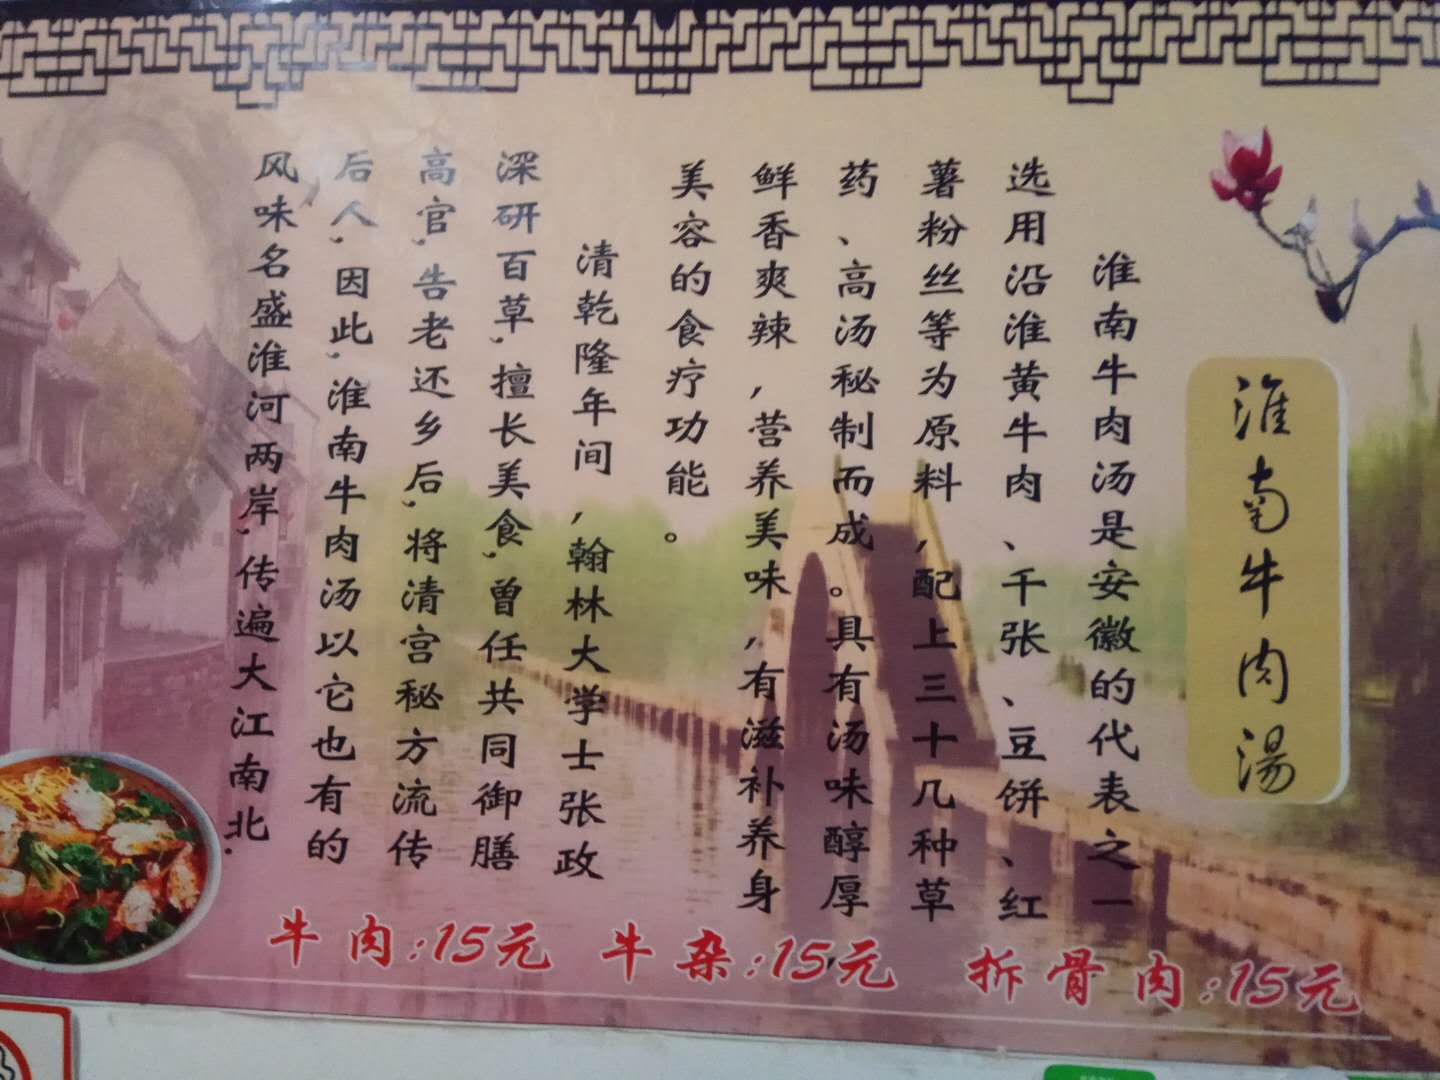 淮南牛肉湯
淮南牛肉汤是安徽的代表之一
选用沿淮黄牛肉、千张、豆饼、红
薯粉丝等为原料，配上三十几种草
药、高汤秘制而成。具有汤味醇厚，
鲜香爽辣，营养美味，有滋补养身
美容的食疗功能。
清乾隆年间，翰林大学士张政
深研百草，擅长美食，曾任共同御膳
高官，告老还乡后，将清宫秘方流传
后人，因此，淮南牛肉汤以它也有的
风味名盛淮河两岸，传遍大江南北.
牛肉:15元 牛杂:15元 拆骨肉:15元